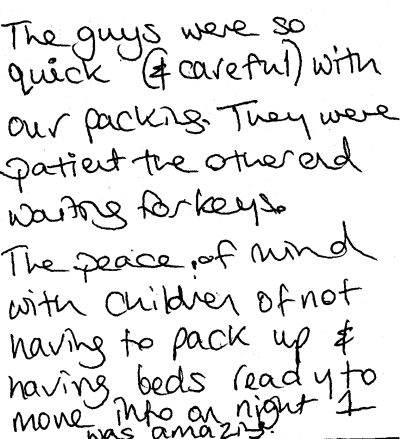 The guys were so
quick (& careful) with
our packing. They were
patient the other end
waiting for keys.
The peace of mind
with children of not
having to pack up &
having beds ready to
move into on night 1
was amazing.